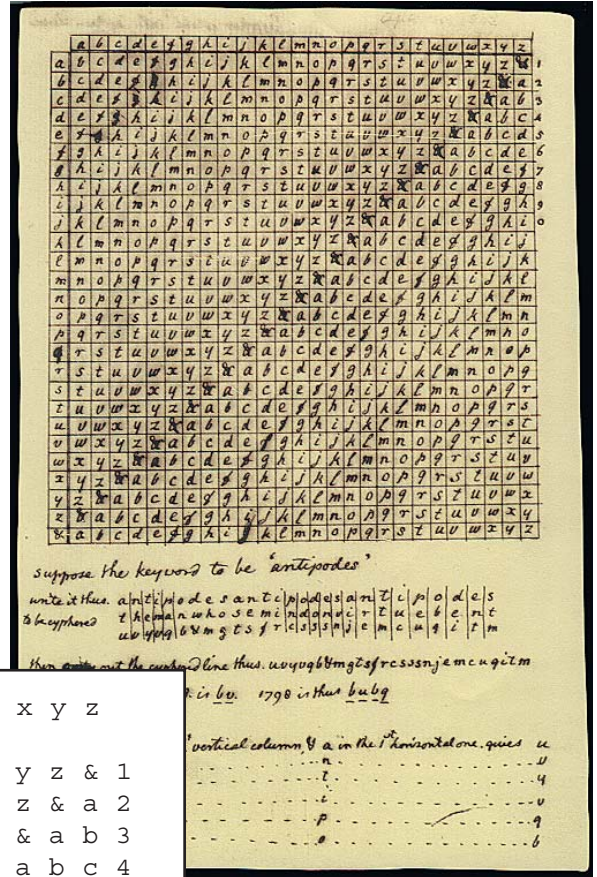 a b c d e f g h i j k l m n o p q r s t u v w x y z
a b c d e f g h i j k l m n o p q r s t u v w x y z & 1
b c d e f g h i j k l m n o p q r s t u v w x y z & a 2
c d e f g h i j k l m n o p q r s t u v w x y z & a b 3
d e f g h i j k l m n o p q r s t u v w x y z & a b c 4
e f g h i j k l m n o p q r s t u v w x y z & a b c d 5
f g h i j k l m n o p q r s t u v w x y z & a b c d e 6
g h i j k l m n o p q r s t u v w x y z & a b c d e f 7
h i j k l m n o p q r s t u v w x y z & a b c d e f g 8
i j k l m n o p q r s t u v w x y z & a b c d e f g h 9
j k l m n o p q r s t u v w x y z & a b c d e f g h i 0
k l m n o p q r s t u v w x y z & a b c d e f g h i j
l m n o p q r s t u v w x y z & a b c d e f g h i j k
m n o p q r s t u v w x y z & a b c d e f g h i j k l
n o p q r s t u v w x y z & a b c d e f g h i j k l m
o p q r s t u v w x y z & a b c d e f g h i j k l m n
p q r s t u v w x y z & a b c d e f g h i j k l m n o
q r s t u v w x y z & a b c d e f g h i j k l m n o p
r s t u v w x y z & a b c d e f g h i j k l m n o p q
s t u v w x y z & a b c d e f g h i j k l m n o p q r
t u v w x y z & a b c d e f g h i j k l m n o p q r s
u v w x y z & a b c d e f g h i j k l m n o p q r s t
v w x y z & a b c d e f g h i j k l m n o p q r s t u
w x y z & a b c d e f g h i j k l m n o p q r s t u v
x y z & a b c d e f g h i j k l m n o p q r s t u v w
y z & a b c d e f g h i j k l m n o p q r s t u v w x
z & a b c d e f g h i j k l m n o p q r s t u v w x y
& a b c d e f g h i j k l m n o p q r s t u v w x y z
suppose the keyword to be 'antipodes'
write it thus. a n t i p o d e s a n t i p o d e s a n t i p o d e s
to be cyphered t h e m a n w h o s e m i n d o n v i r t u e b e n t
u v y v q b & m g t s f r c s s s n j e m c u q i t m
then out the cyphered line thus. uvyvqb&mgtsfrcsssnjemcuqitm
is bv. 1798 is thus bubq
vertical column & a in the 1st horizontal one. gives u
n v
t y
i v
p q
o b
x y z
y z & 1
z & a 2
& a b 3
a b c 4